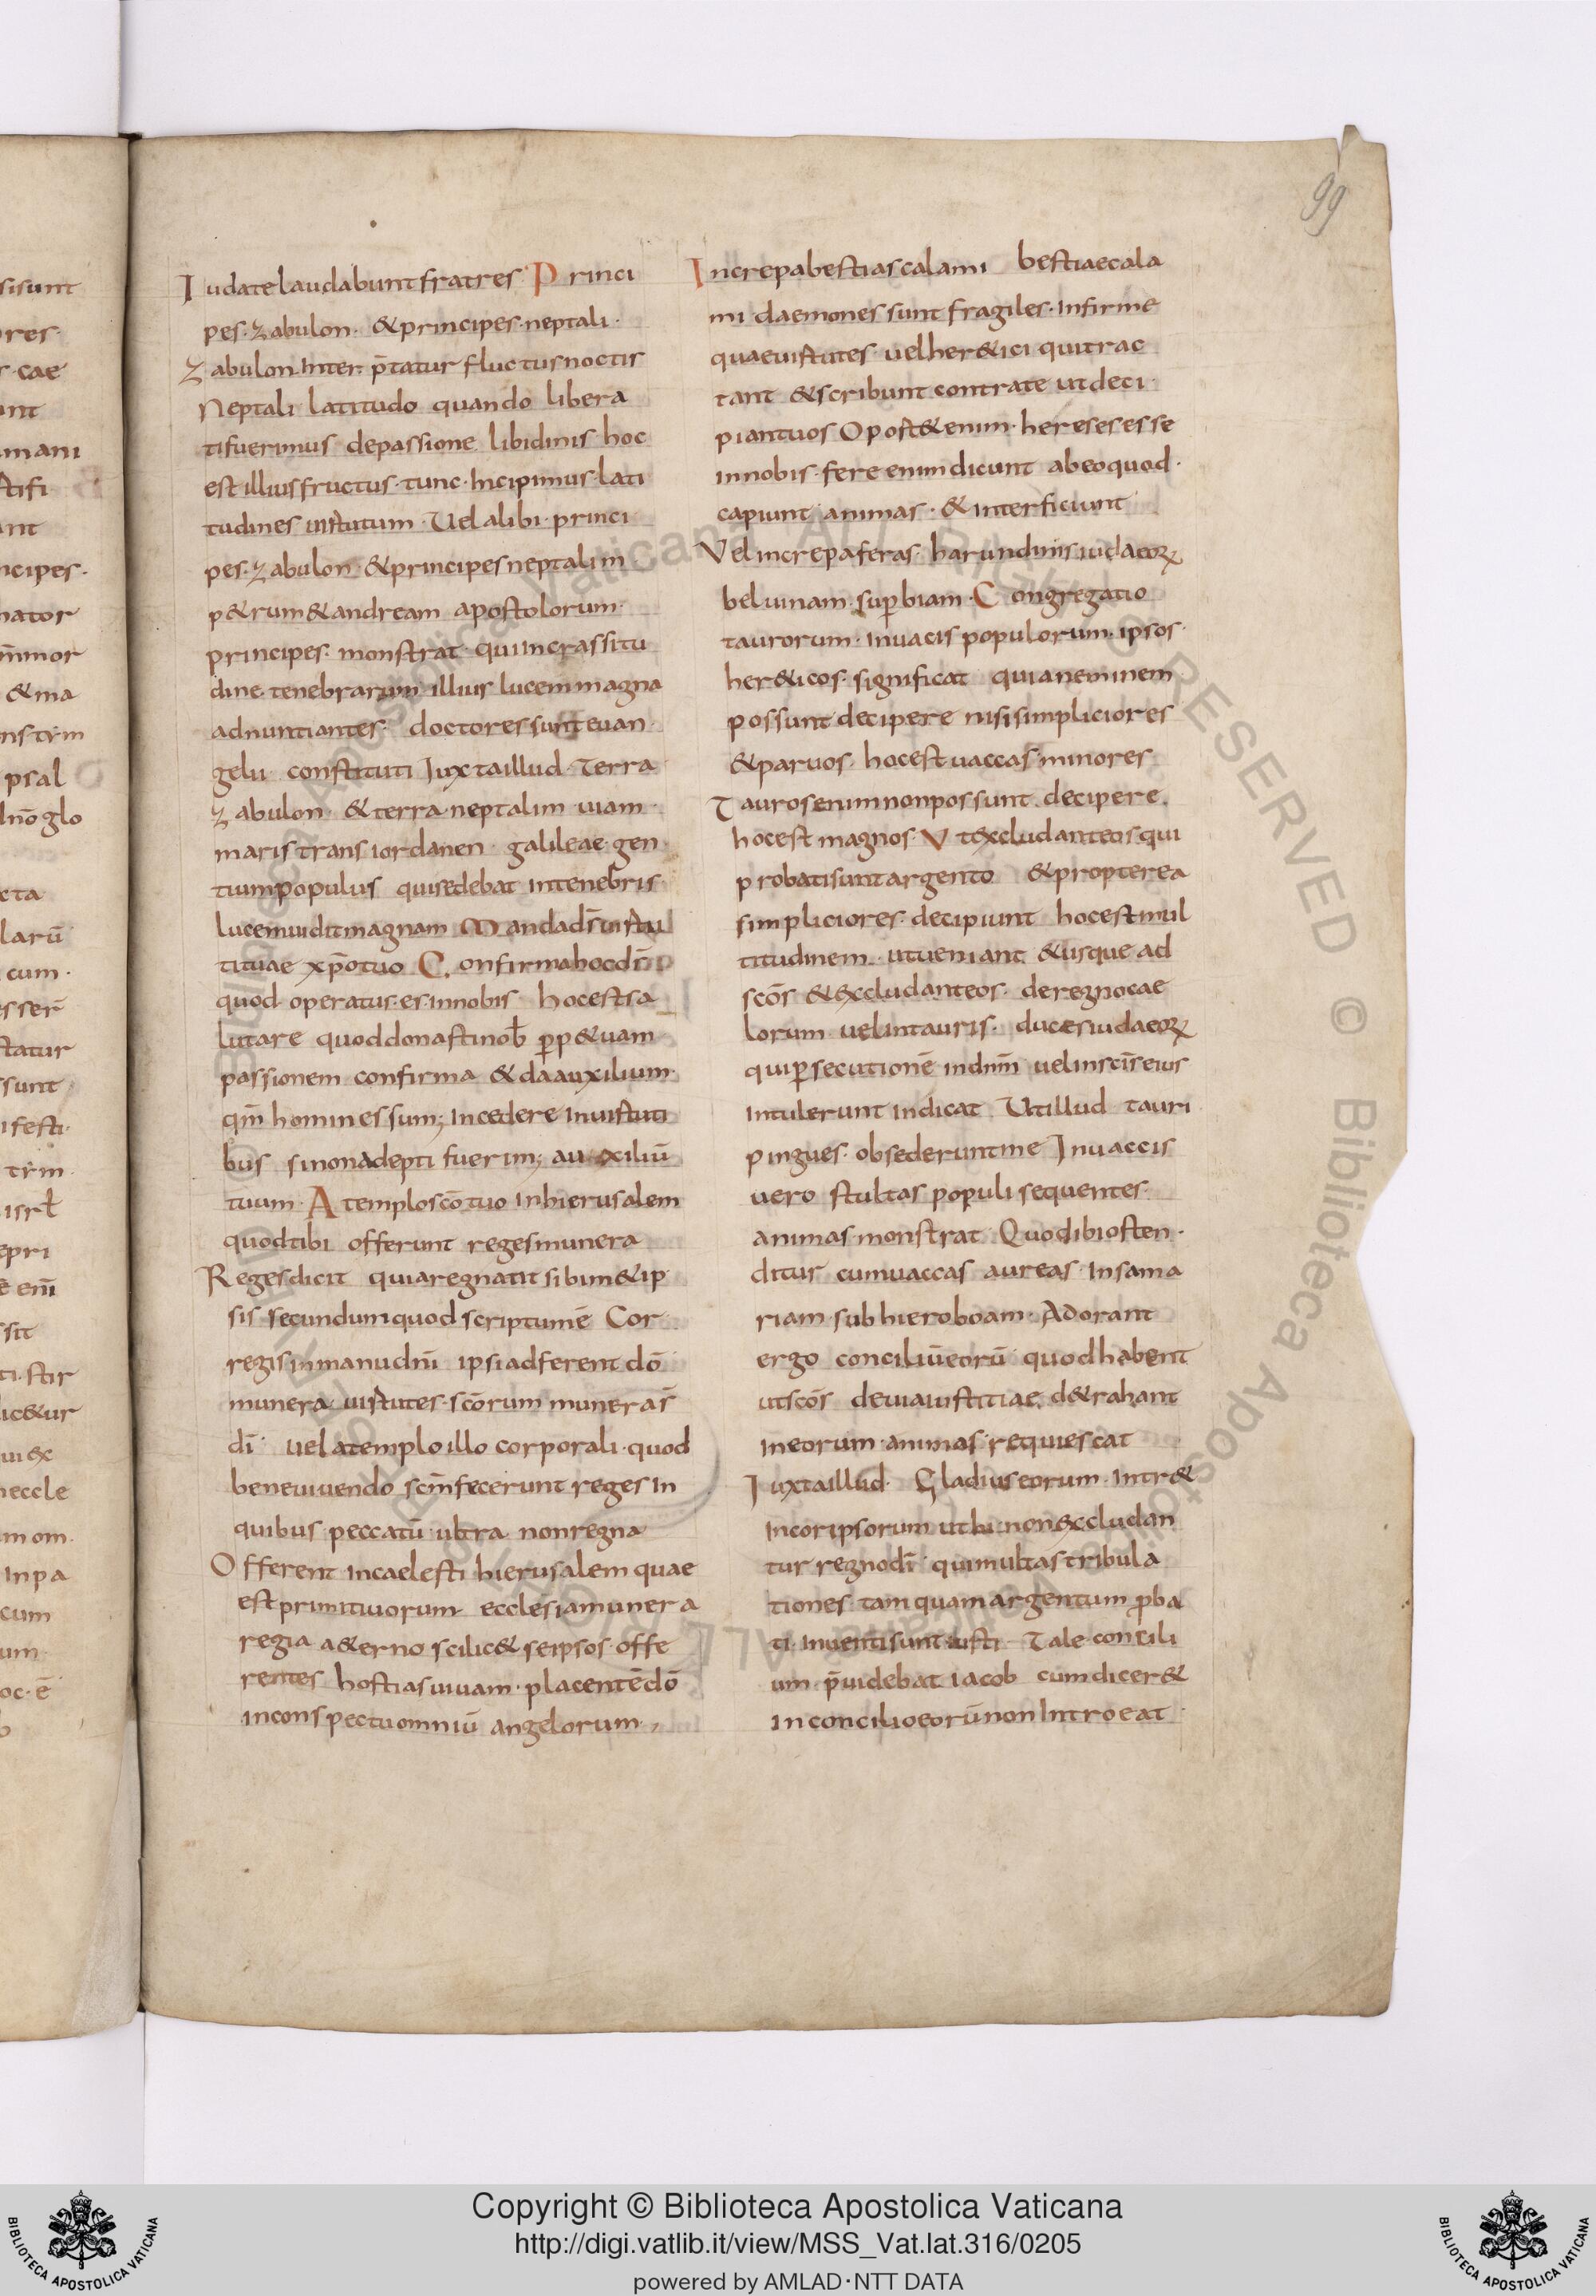 99
Iudate laudabunt fratres Princi
pes· zabulon· & principes· neptali·
Zabulon Inter p̄tatur fluctus noctis
Neptali latitudo quando libera
ti fuerimus de passione libidinis hoc
est illius fructus· tunc· Incipimus lati
tudines uirtutum· Uel alibi· princi
pes· zabulon· & principes neptalim
p&rum & andream apostolorum·
principes· monstrat· qui In crassitu
dine tenebrarum illius lucem magna
adnuntiantes· doctores sunt euan
gelii constituti Iuxta illud· Terra
zabulon· & terra neptalim uiam
maris trans iordanen· galileae gen
tium populus qui sedebat In tenebris
lucem uidit magnam Manda ds̄ uirtu
ti tuae xp̄o tuo Confirma hoc ds̄
quod operatus· es· in nobis hoc est sa
lutare quod donasti nob̄ p̱ p&uam
passionem confirma & da auxilium
qm̄ homines sum; Incedere In uirtuti
bus si non adepti fuerim; auxiliū
tuum· A templo sc̄o tuo In hierusalem
quod tibi offerunt reges munera
Reges dicit quia regnauit sibim&ip
sis secundum quod scriptum ē Cor
regis in manu dn̄i ipsi adferent dō
munera uirtutes· sc̄orum munera s̄
dī· uel a templo illo corporali· quod
bene uiuendo scm̄ fecerunt reges In
quibus peccatū ultra non regna
Offerent In caelesti hierusalem quae
est primitiuorum ecclesia munera
regia a&erno scilic& se ipsos offe
rentes hostias uiuam· placentē dō
in conspectu omniū angelorum·,
Increpa bestias calami bestiae cala
mi daemones sunt fragiles· Infirme
quae uirtutes· uel her&ici qui trac
tant & scribunt contra te ut deci
piant uos Oport& enim· hereses esse
in nobis· fere enim dicunt ab eo quod·
capiunt animas· & Interficiunt
Vel increpa feras· harundinis iudaeoꝝ
beluinam· sup̱biam· Congregatio
taurorum· In uacis populorum· ipsos·
her&icos· significat quia neminem
possunt decipere nisi simpliciores
& paruos· hoc est uaccas· minores·
Tauros enim non possunt decipere·
hoc est magnos· Vt excludant eos qui
probati sunt argento & propterea
simpliciores· decipiunt hoc est mul
titudinem· ut ueniant & usque ad
sc̄os & excludant eos· de regno cae
lorum uel in tauris· duces iudaeoꝝ
qui p̱secutionē in dnm̄ uel in scīs eius
Intulerunt Indicat Ut illud tauri
pingues· obsederunt me In uaccis
uero stultas populi sequentes·
animas monstrat· Quod ibi osten
ditur cum uaccas aureas· In sama
riam· sub hieroboam· Adorant
ergo conciliū eorū quod habent
ut sc̄os de uia iustitiae· d&rahant
In eorum animas requiescat
Iuxta illud· Gladius eorum· Intr&
In cor ipsorum ut hi non excludan
tur regno dī· qui multas tribula
tiones tam quam argentum p̱ba
ti· Inuenti sunt iusti Tale concili
um p̄uidebat iacob cum dicer&
In concilio eorū non Introeat
Copyright © Biblioteca Apostolica Vaticana
http://digi.vatlib.it/view/MSS_Vat.lat.316/0205
powered by AMLAD·NTT DATA
BIBLIOTECA APOSTOLICA VATICANA
BIBLIOTECA APOSTOLICA VATICANA